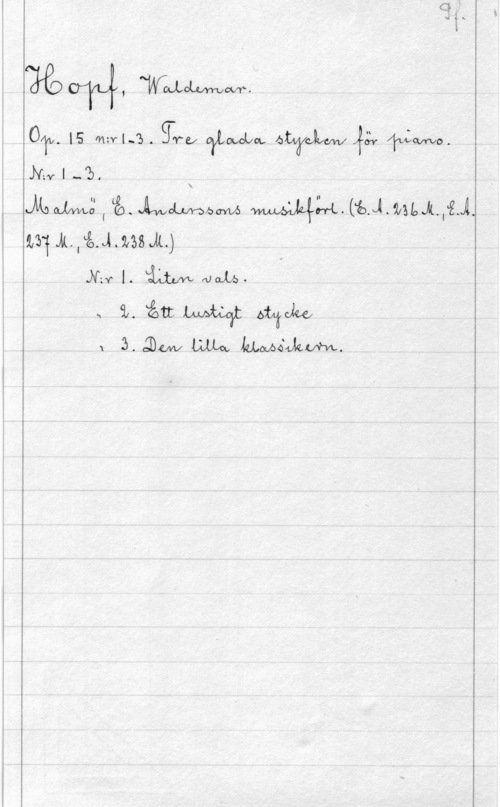 Pf.
Hopf, Waldemar.
Op. 15 n:r 1-3. Tre glada stycken för piano.
N:r 1-3.
Malmö, E. Anderssons musikförl. (E.A. 236 M., E.A.
237 M., E.A. 238 M.)
N:r 1. Liten vals.
" 2. Ett lustigt stycke
" 3. Den lilla klassikern.